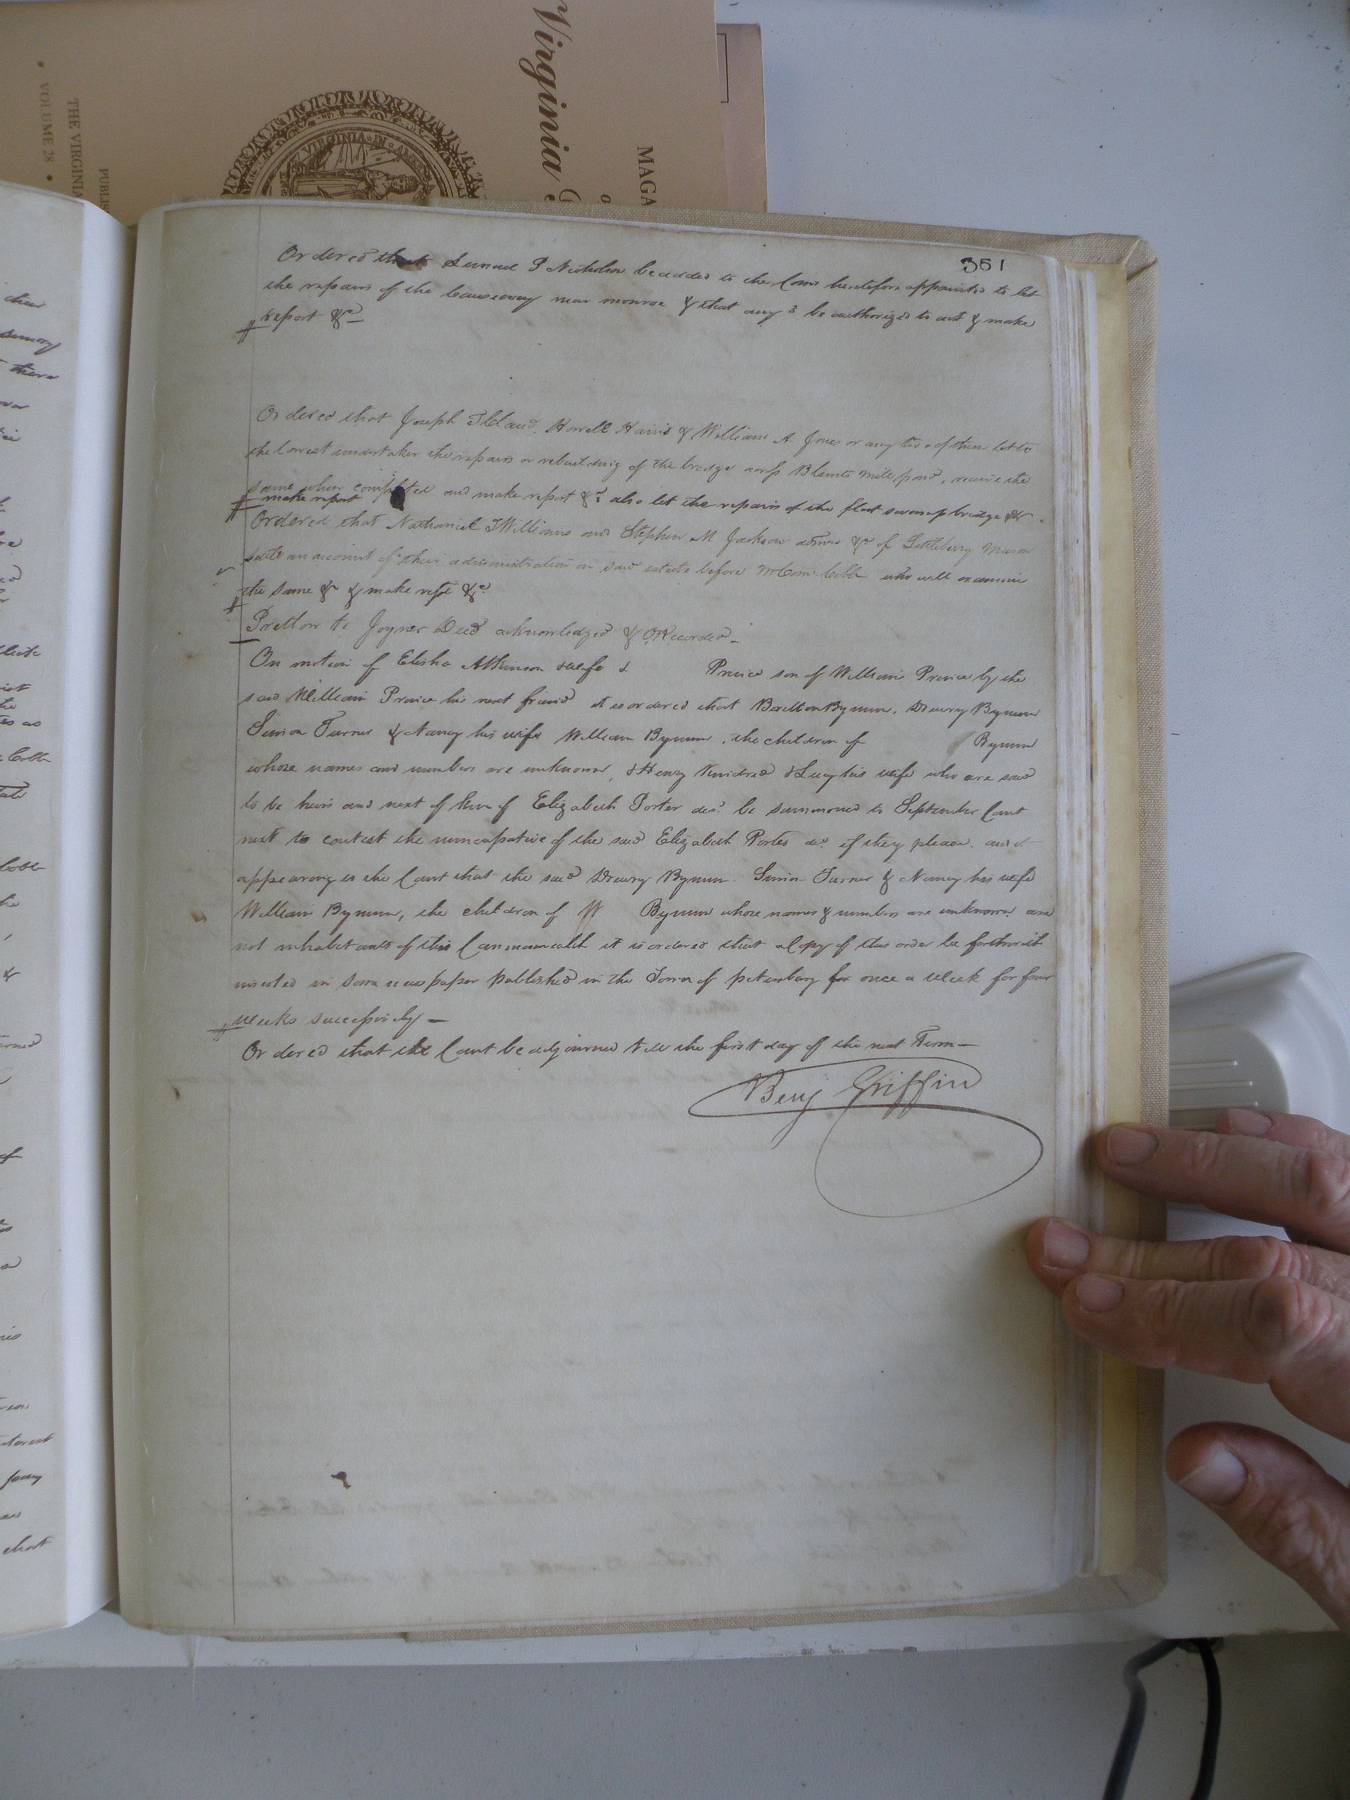 Virginia
MAGA
THE VIRGINIA
VOLUME 28
PUBLIS
351
Ordered that Lemuel P Nicholson be added to the Coms heretofore appointed to let
the repairs of the Causeway near monroe & that any 3 be authorized to act & make
report &c
Ordered that Joseph T Claud, Howell Harris & William A. Jones or any two of them let to
the lowest undertaker the repairs or rebuilding of the bridge across Blunts mill pond, receive the
same when completed and make report &c also let the repairs of the flat swamp bridge &c
make report
Ordered that Nathaniel T Williams and Stephen M Jackson &c of Littleberry Mason
settle an account of their administration on said estate before Cobb who will examine
the same &c & make report &c
Pretlow to Joyner Deed acknowledged & ORecorded
On motion of Elisha Atkinson & wife & Prince son of William Prince by the
said William Prince his next friend it is ordered that Bynum, Drewry Bynum
Simon Turner & Nancy his wife William Bynum, the children of Bynum
whose names and numbers are unknown, & Henry Kindred & Lucy his wife who are said
to be heirs and next of kin of Elizabeth Porter decd. be summoned to September Court
next to contest the nuncupative of the said Elizabeth Porter decd if they please. and it
appearing to the Court that the said Drewry Bynum Simon Turner & Nancy his wife
William Bynum, the children of W Bynum whose names & numbers are unknown are
not inhabitants of this Commonwealth it is ordered that a Copy of this order be forthwith
inserted in some newspaper published in the Town of petersburg for once a week for four
weeks successively
Ordered that the Court be adjourned till the first day of the next Term
Benj Griffin